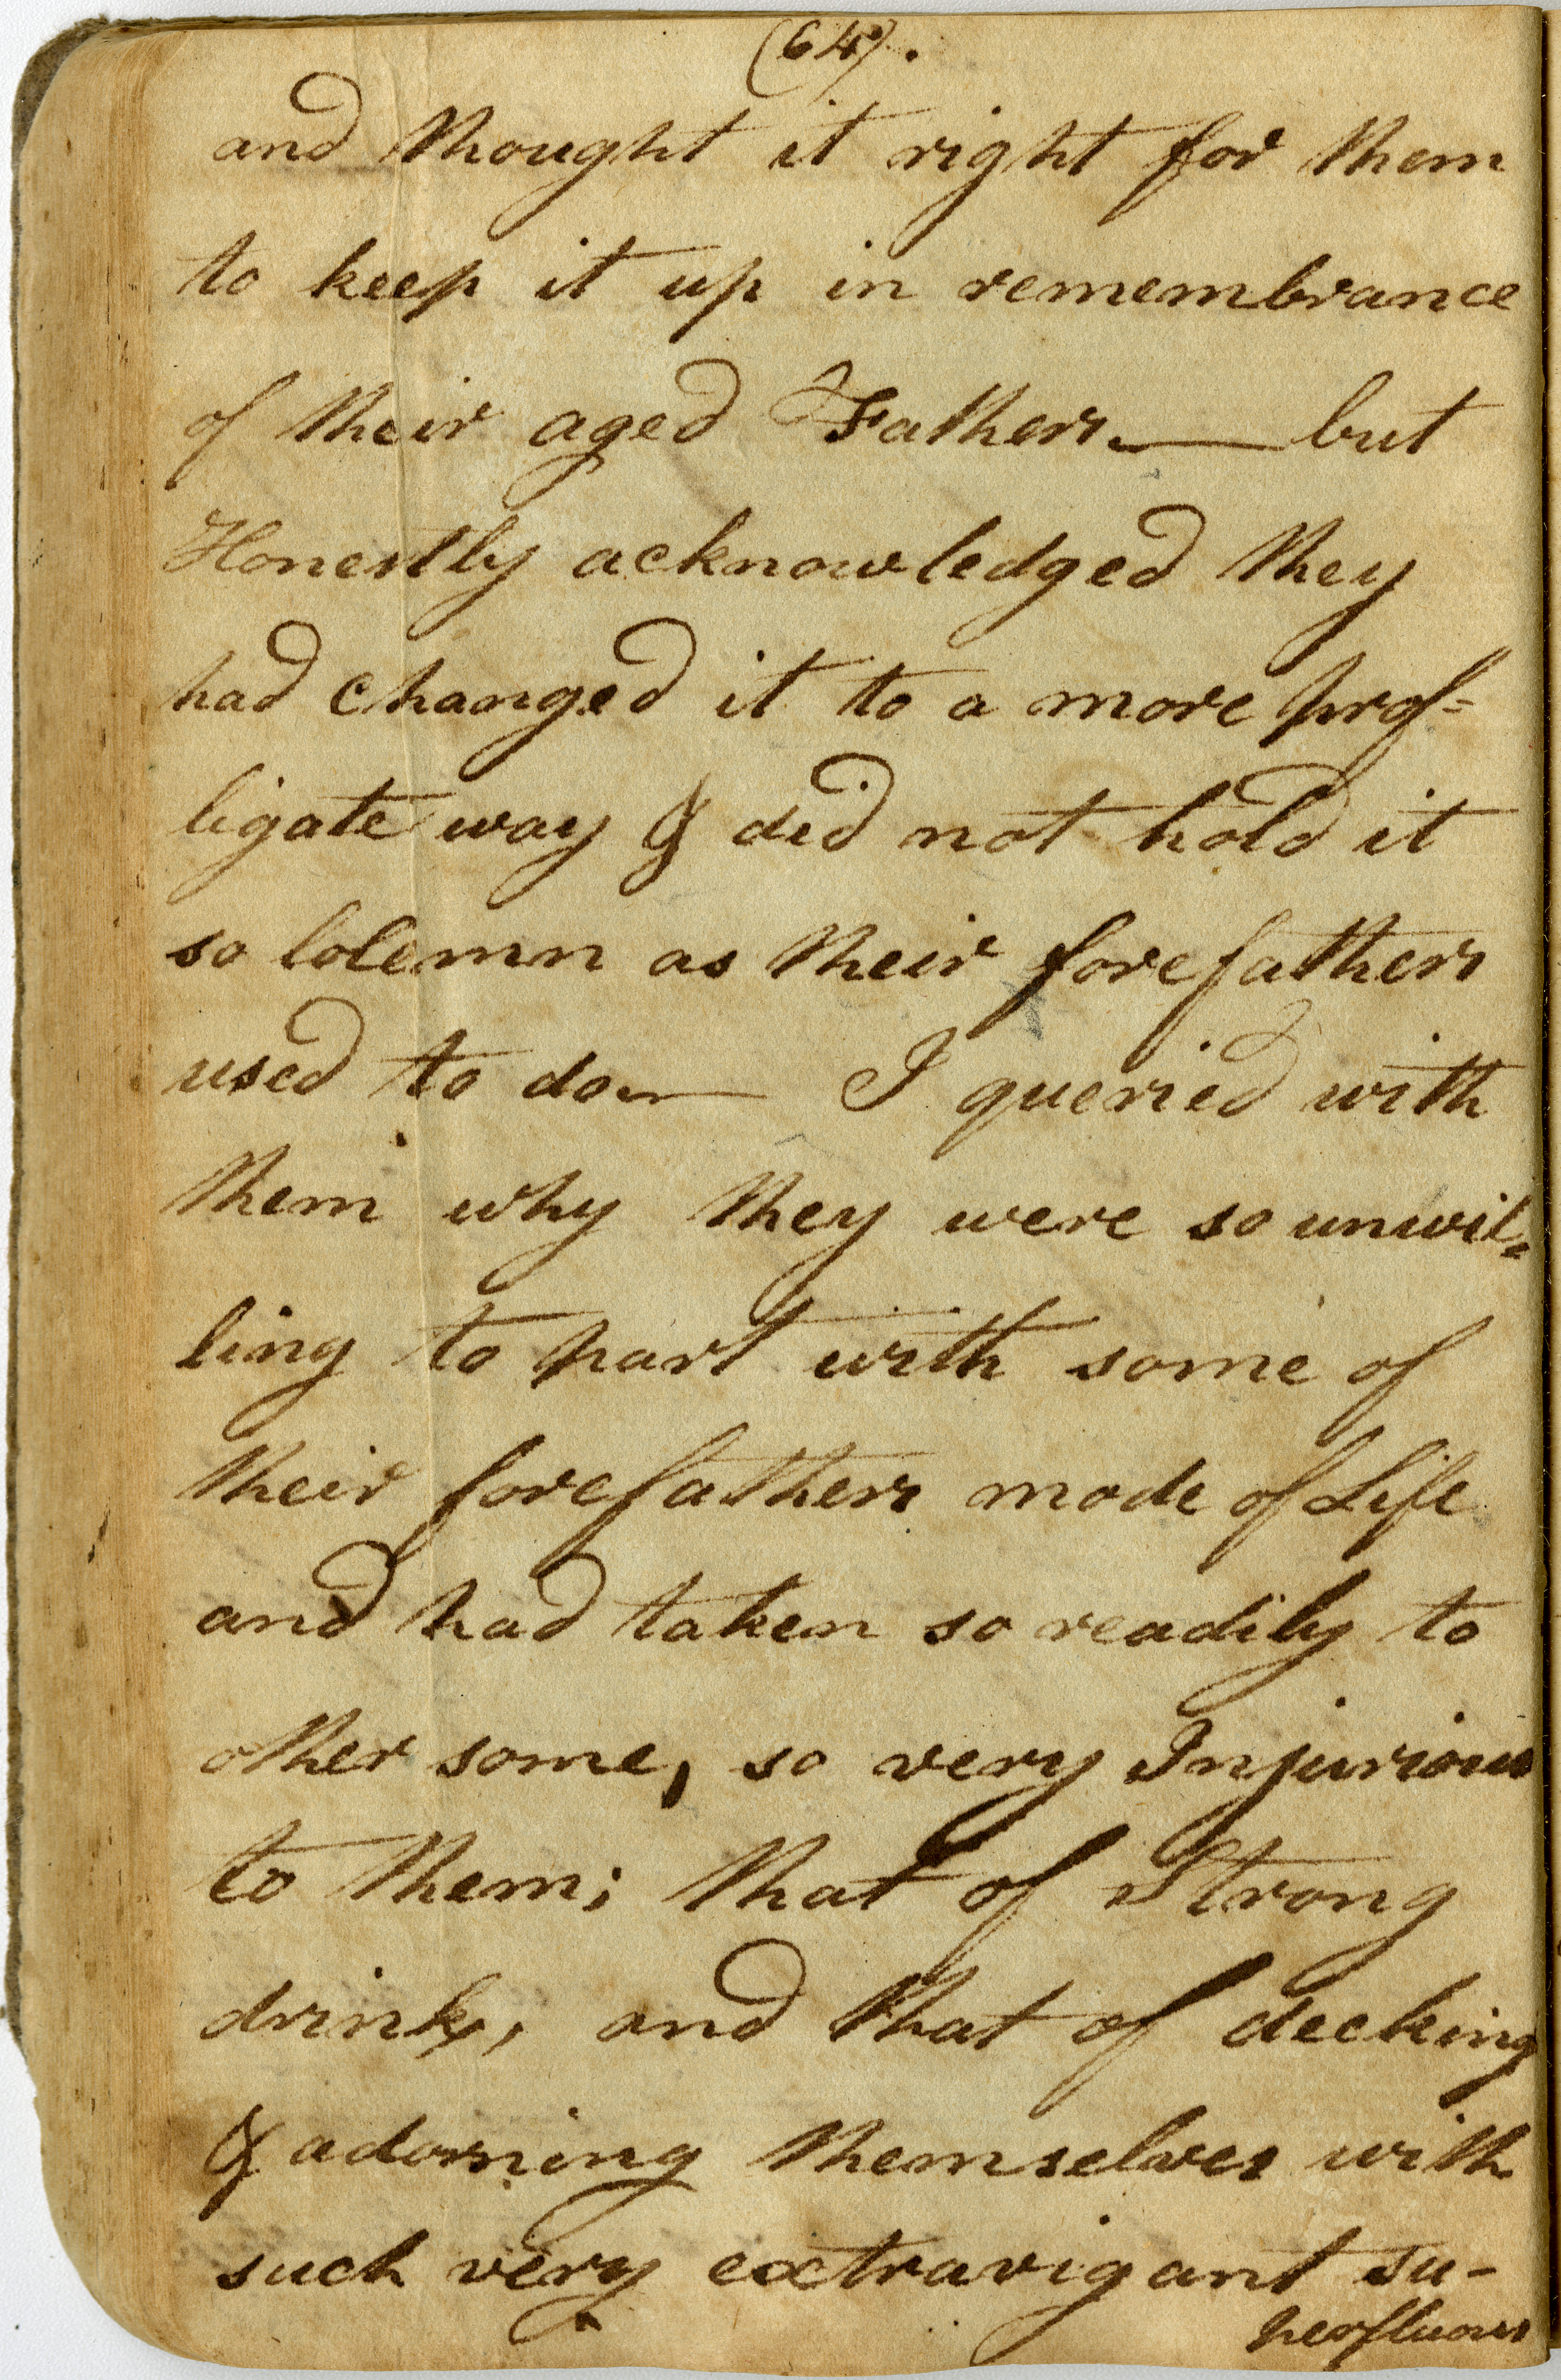 (64).
and thought it right for them
to keep it up in remembrance
of their aged Fathers. — but
Honestly acknowledged they
had changed it to a more prof=
ligate way & did not hold it
so lolemn as their forefathers
used to do — I queried with
them why they were so unwil=
ling to part with some of
their forefathers mode of Life
and had taken so readily to
other some, so very Injurious
to them; that of Strong
drink, and that of decking
& adorning themselves with
such very extravigant su-
perfluous